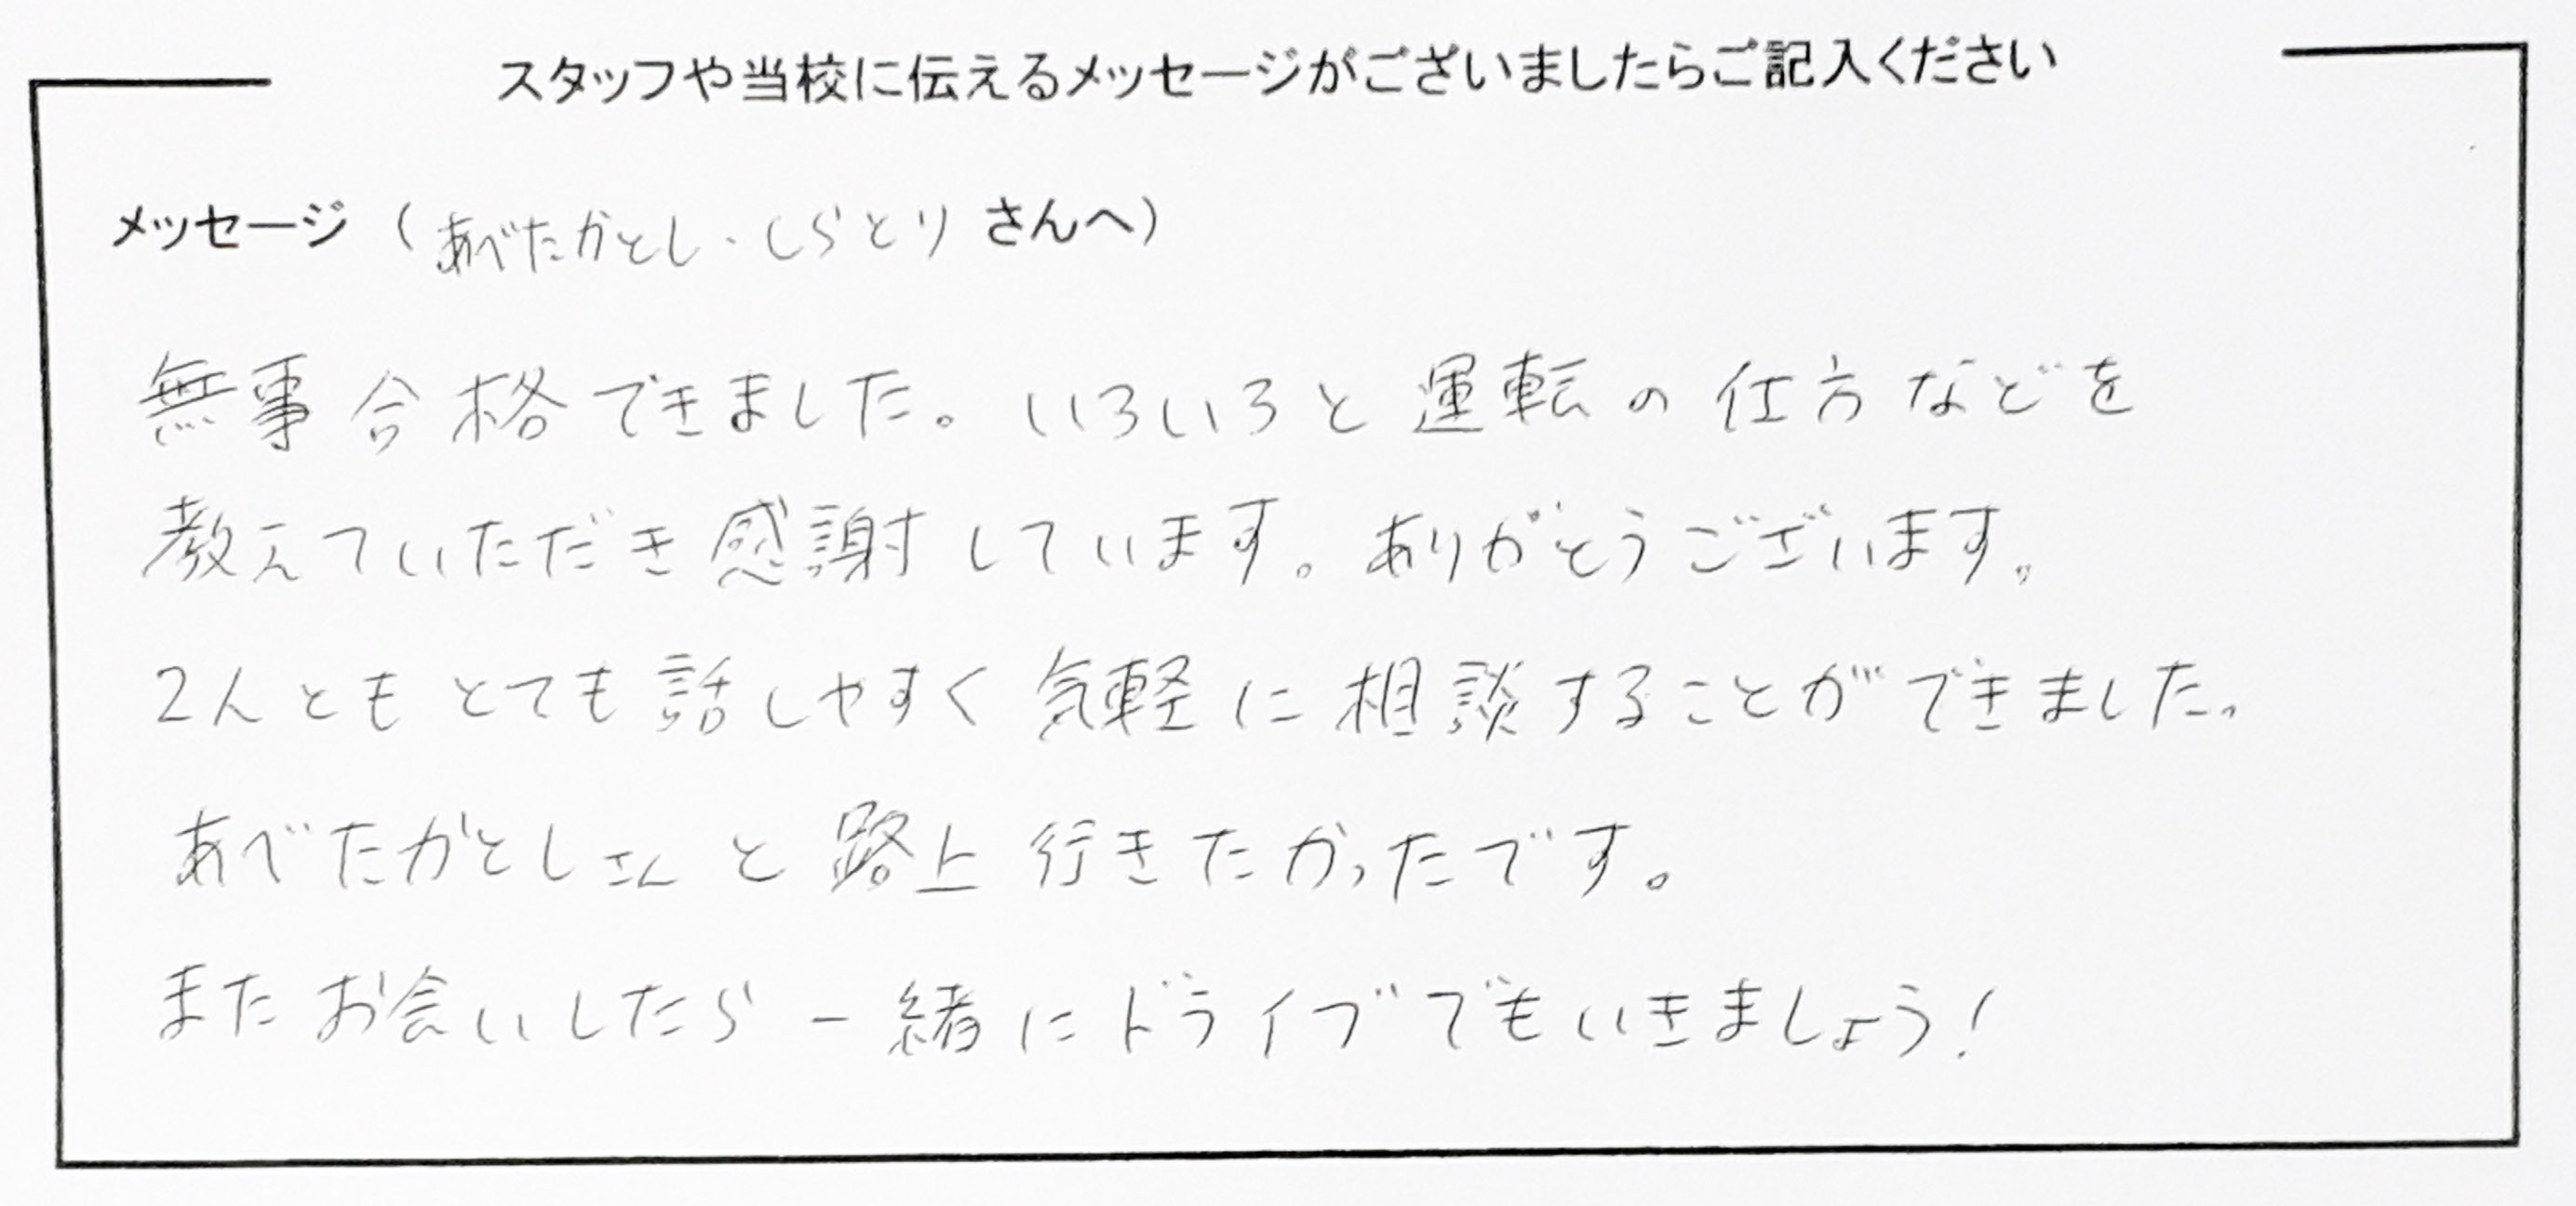 スタッフや当校に伝えるメッセージがございましたらご記入ください
メッセージ（あべたかとし・しらとり さんへ）
無事合格できました。いろいろと運転の仕方などを
教えていただき感謝しています。ありがとうございます。
2人ともとても話しやすく気軽に相談することができました。
あべたかとしさんと路上行きたかったです。
またお会いしたら一緒にドライブでもいきましょう!